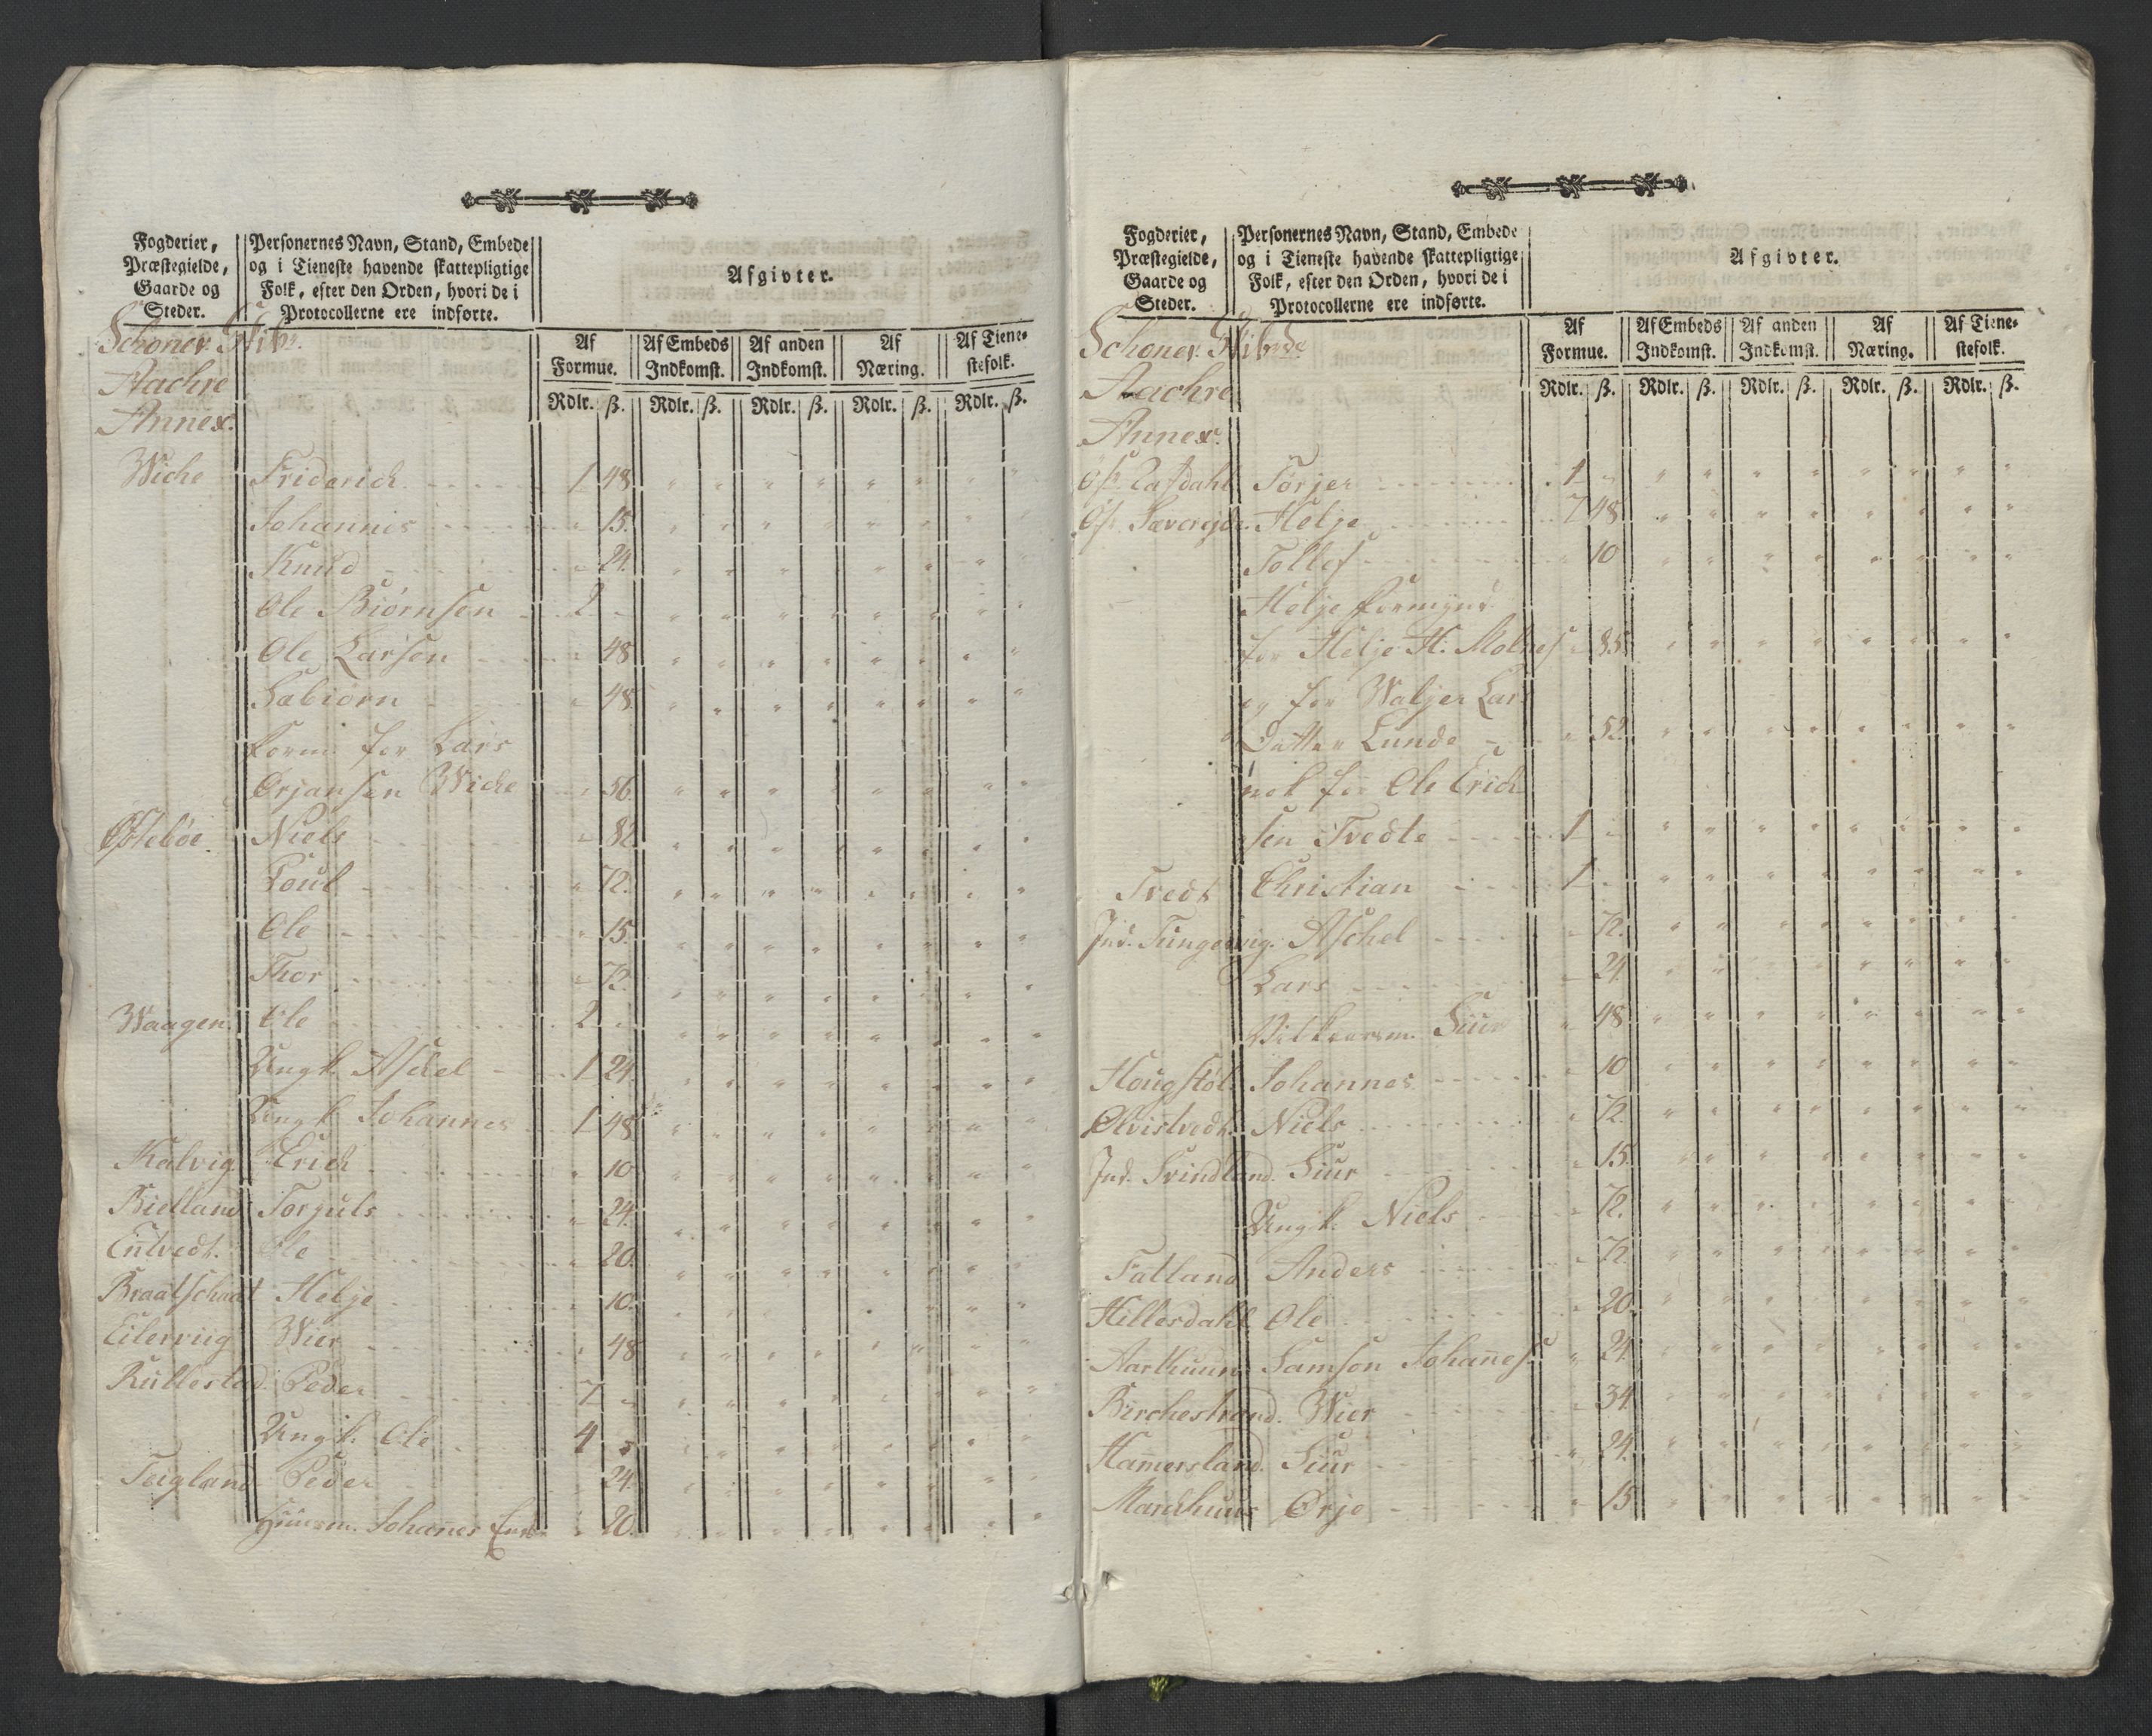 Fogderier,
Præstegielde,
Gaarde og
Steder.
Personernes Navn, Stand, Embede
og i Tieneste havende skattepligtige
Folk, efter den Orden, hvori de i
Protocollerne ere indførte.
Afgivter.
Af Formue. Af Embeds Indkomst. Af anden Indkomst. Af Næring. Af Tienestefolk.
Rdlr. ß. Rdlr. ß. Rdlr. ß. Rdlr. ß. Rdlr. ß.
Schoner
Aachre
Annex.
Wiche Friderich 1 48
Johannis 15.
Knud 24.
Ole Biørnsen 2
Ole Larsen 48
Sæbiørn 48.
form. for Lars
Ørjansen Wiche 56.
Østebøe. Niels 82
Poul 72.
Ole 15.
Thor 72.
Waagen. Ole 2
Ungk. Aschel 1 24.
Ungk. Johannes 1 48.
Kalvig Erich 10
Bielland Torjuls 24.
Entvedt. Ole 20.
Braatschaat Helje 10.
Eilerviig Wier 48
Rullestad. Peder 7
Ungk. Ole 4
Teigland Peder 24.
Huusm. Johanes 20.
Fogderier,
Præstegielde,
Gaarde og
Steder.
Personernes Navn, Stand, Embede
og i Tieneste havende skattepligtige
Folk, efter den Orden, hvori de i
Protocollerne ere indførte.
Afgivter.
Af Formue. Af Embeds Indkomst. Af anden Indkomst. Af Næring. Af Tienestefolk.
Rdlr. ß. Rdlr. ß. Rdlr. ß. Rdlr. ß. Rdlr. ß.
Schoner
Aachre
Annex.
Torjer 1
Helje 7 48
Tollef 10
Helje formynd.
for Helje H. Molnes 85
og for Waljer Lars
Datter Lunde 52.
nok for Ole Erich
sen Tvedte 1
Tvedt Christian 1
Ind. Tungesvig. Aschel 72.
Lars 24.
Siur 48
Hougstøl. Johannes 10
Ølvistvedt. Niels 72.
Ind. Svindland. Siur 15.
Ungk. Niels 72.
Fatland Anders 72.
Hillesdahl Ole 20.
Aarthuun Samson Johanes. 24.
Birchestrand. Wier 34
Hamersland. Siur 24.
Mandhuus Ørje 15